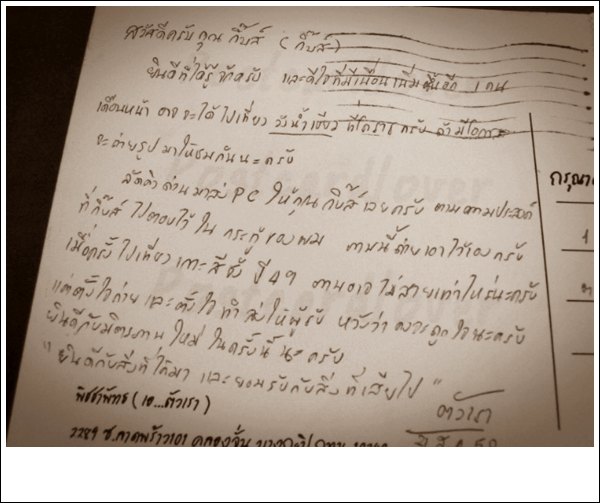 สวัสดีครับ คุณ กิ๊บส์ (กิ๊บส์)
ยินดีที่ได้รู้จักครับ และดีใจที่มีเพื่อนเพิ่มขึ้นอีก 1 คน
เดือนหน้า อาจจะได้ไปเที่ยว วังน้ำเขียว ที่โคราช ครับ ถ้ามีโอกาส
จะถ่ายรูปมาให้ชมกันนะครับ
ลัดคิวด่วนมาส่ง PC ให้คุณ กิ๊บส์ เลยครับ ตามความประสงค์
ที่กิ๊บส์ ไปตอบไว้ ใน กระทู้ของผม ภาพนี้ถ่ายเอาไว้เองครับ
เมื่อครั้งไปเที่ยว เกาะสีชัง ปี 49 ภาพอาจไม่สวยเท่าไหร่นะครับ
แต่ตั้งใจถ่าย และตั้งใจทำส่งให้ผู้รับ หวังว่าคงจะถูกใจนะครับ
ยินดีกับมิตรภาพใหม่ ในครั้งนี้ นะครับ
"ยินดีกับสิ่งที่ได้มา และยอมรับกับสิ่งที่เสียไป"
ตัวเรา
พิชชาพัทธ (เอ...ตัวเรา)
2289 ซ.ลาดพร้าว101 คลองจั่น บางกะปิ กทม.
กรุณา
Postcardlover